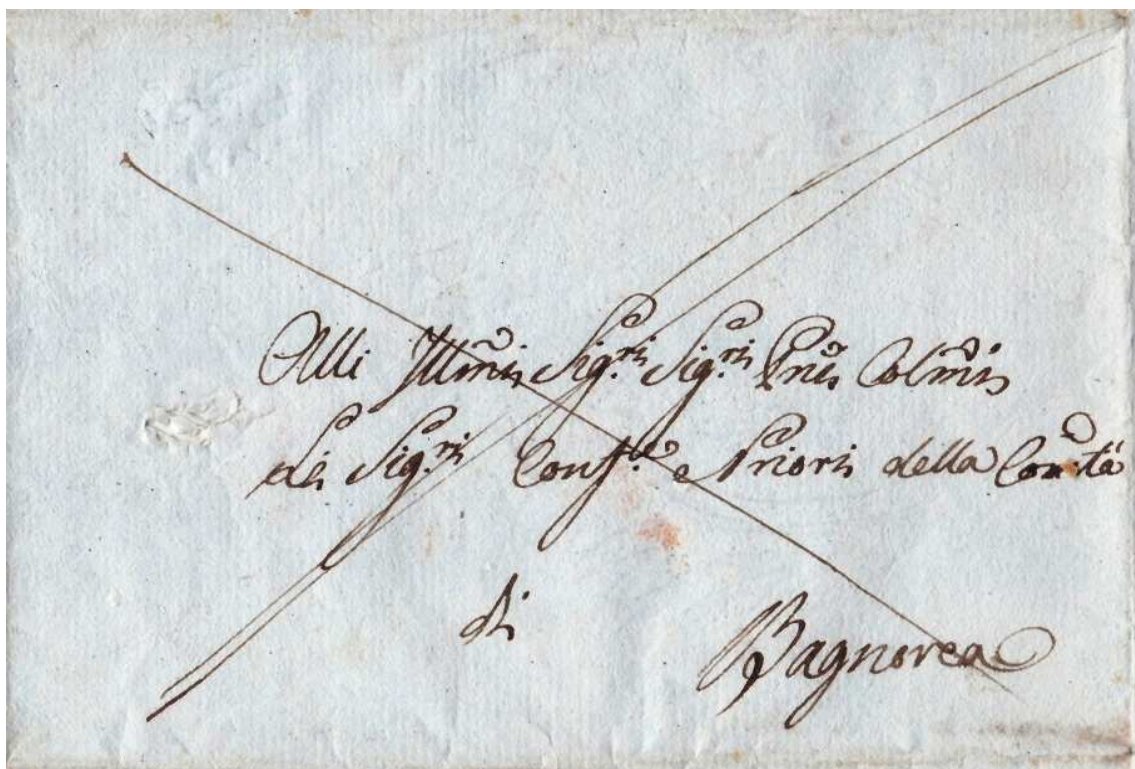 Alli Illmi Sig.ri Sig.ri Pni Colmi
Li Sig.ri Conf.e e Priori della Com.tà
di
Bagnorea